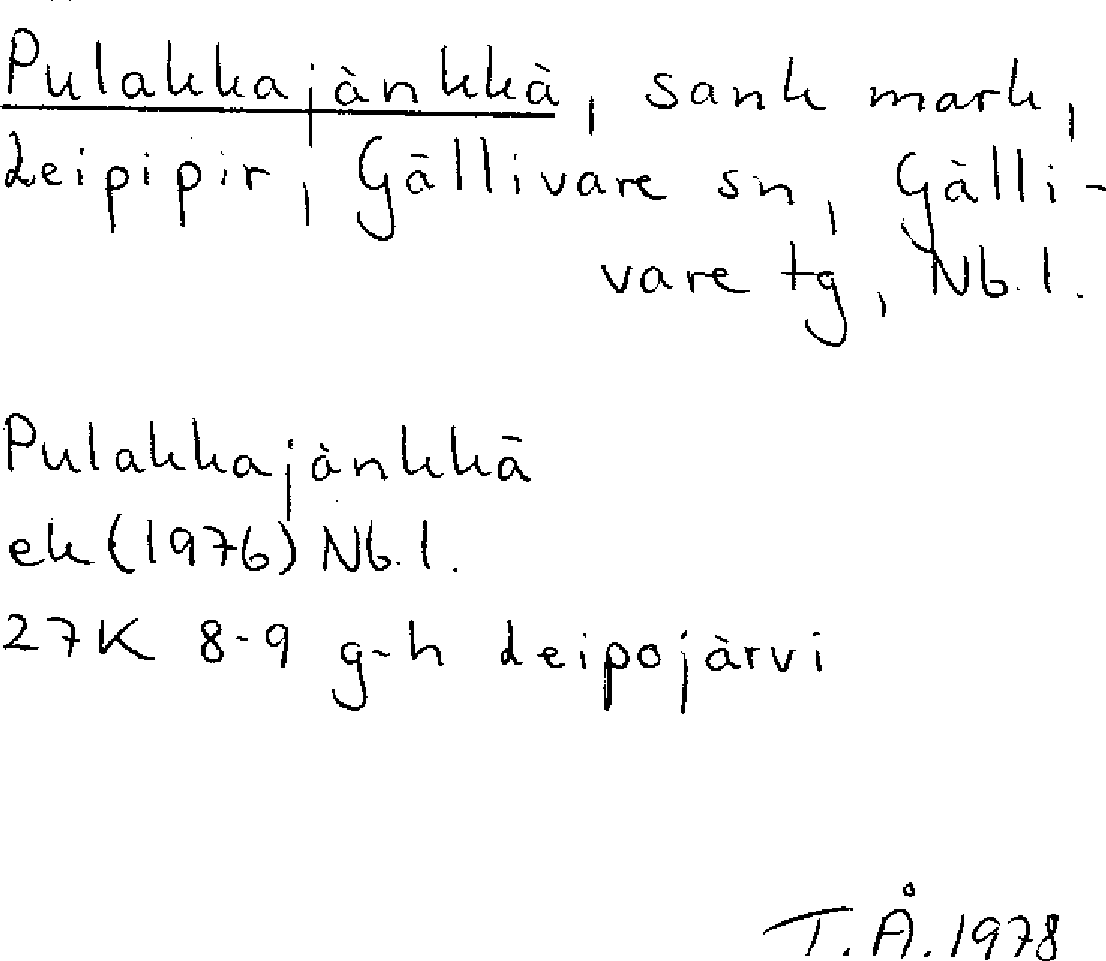 Pulakkajänkkä, sank mark,
Leipipir, Gällivare sn, Gälli-
vare tg, Nb. l.
Pulakkajänkkä
ek (1976) Nb. l.
27K 8-9 g-h Leipojärvi
T.Å. 1978